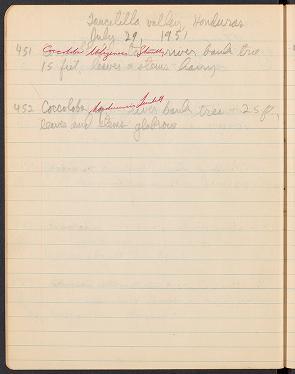 valley, Honduras
July 29, 1951
451 Coccoloba river bank tree
15 feet, leaves + stems hairy
452 Coccoloba river bank tree - 25 ft,
leaves and stems glabrous